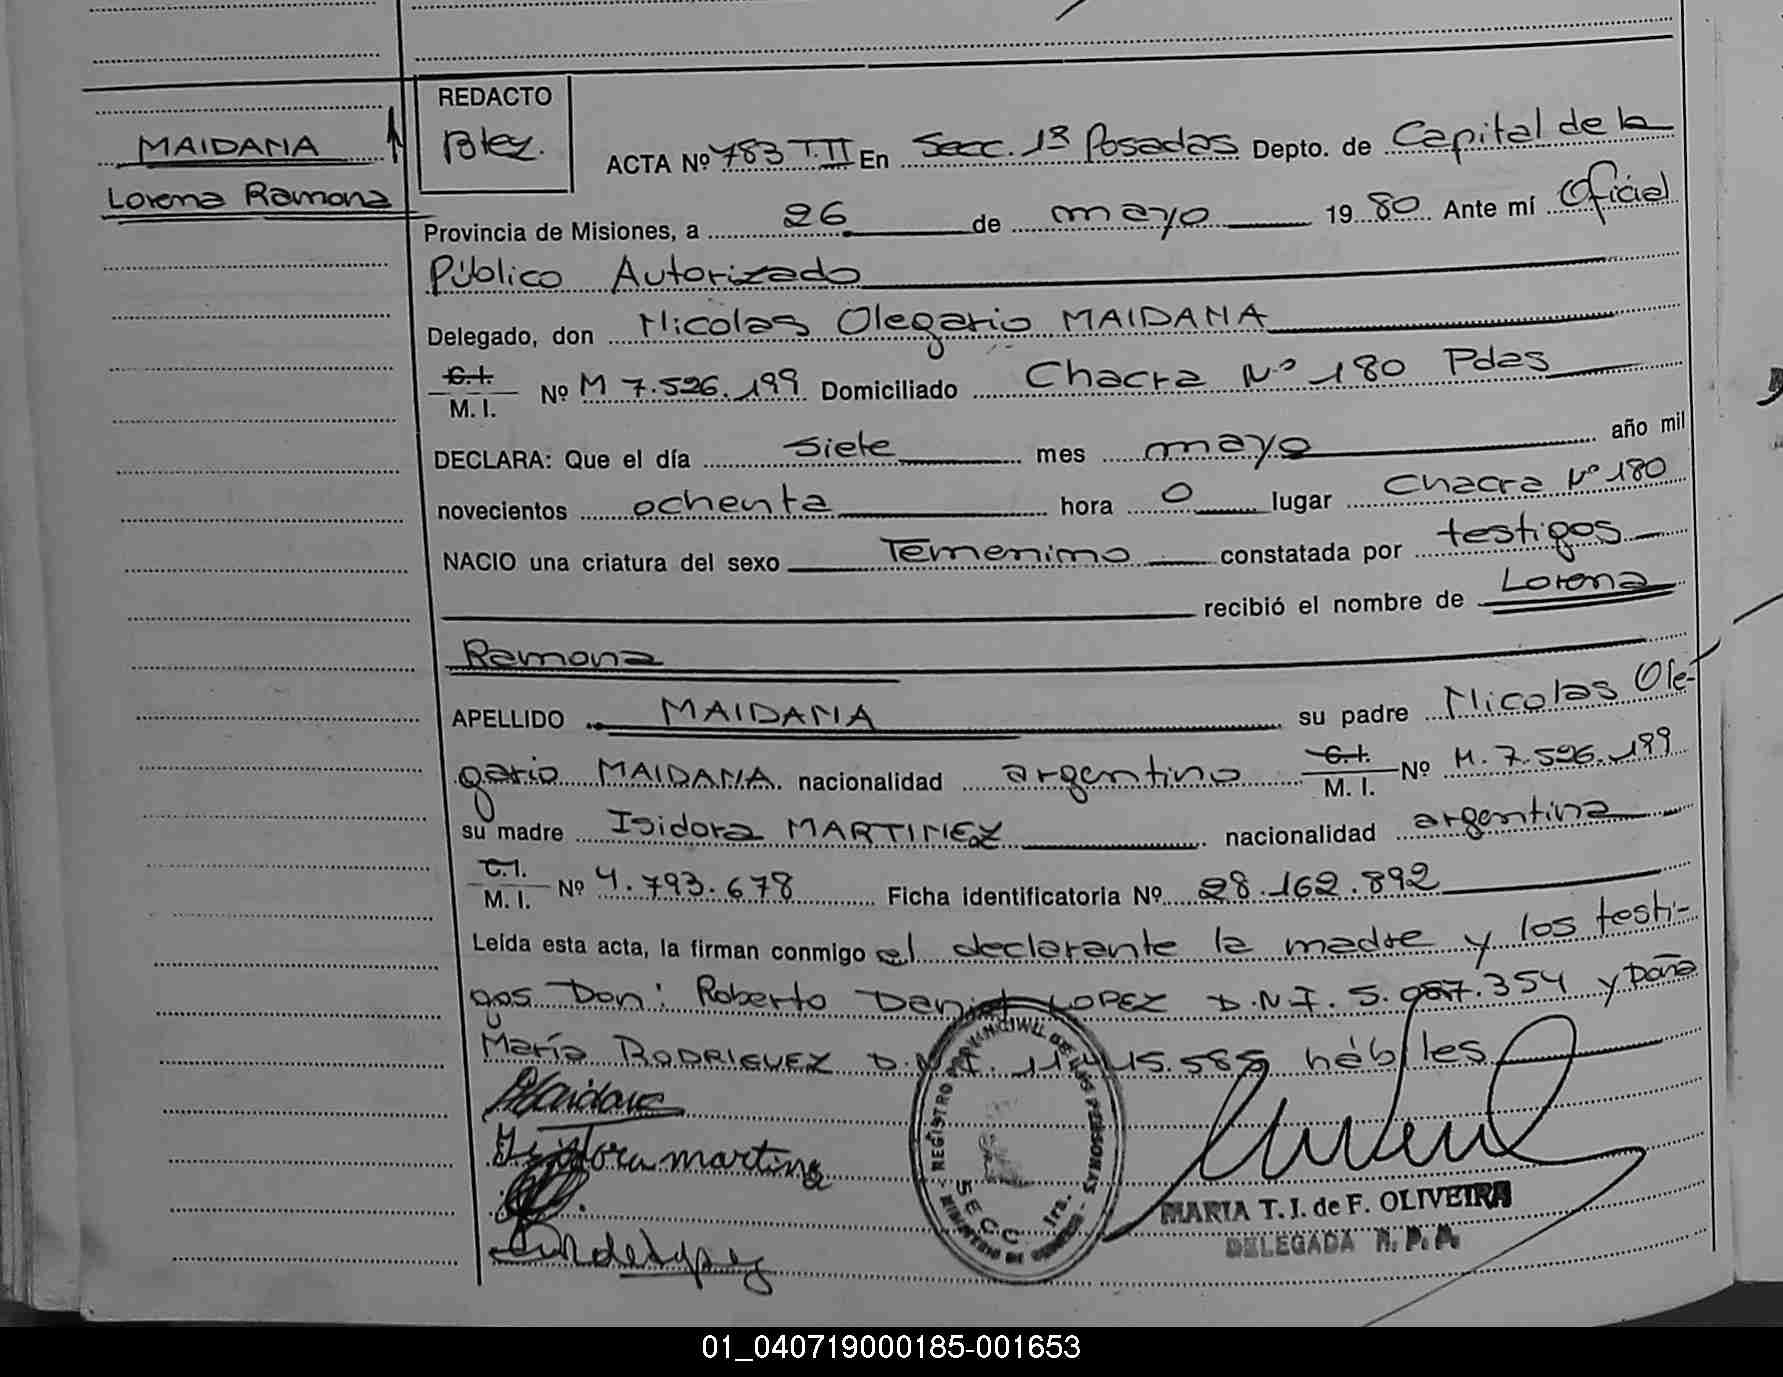 REDACTO
MAIDANA
Lorena Ramona
ACTA Nº 783 T.II En Secc. 1ª Posadas Depto. de Capital de la
Provincia de Misiones, a 26 de mayo 1980 Ante mí Oficial
Público Autorizado
Delegado, don Nicolas Olegario MAIDANA
C.I.
M. I. Nº M 7.526.199 Domiciliado Chacra Nº 180 Pdas
DECLARA: Que el día siete mes mayo año mil
novecientos ochenta hora 0 lugar Chacra Nº 180
NACIO una criatura del sexo Femenino constatada por testigos
recibió el nombre de Lorena
Ramona
APELLIDO MAIDANA su padre Nicolas Ole-
gario MAIDANA nacionalidad argentino C.I. M. I. Nº M. 7.526.199
su madre Isidora MARTINEZ nacionalidad argentina
C.I.
M. I. Nº 4.793.678 Ficha identificatoria Nº 28.162.892
Leída esta acta, la firman conmigo el declarante la madre y los testi-
gos Don: Roberto Daniel LOPEZ D.N.I. 5.087.354 y Doña
María RODRIGUEZ D.N.I. hábiles
Maidana
Isidora martinez
REGISTRO PROVINCIAL DE LAS PERSONAS
SECC. 1ra.
MARIA T. J. de F. OLIVEIRA
DELEGADA R. P. P.
01_040719000185-001653